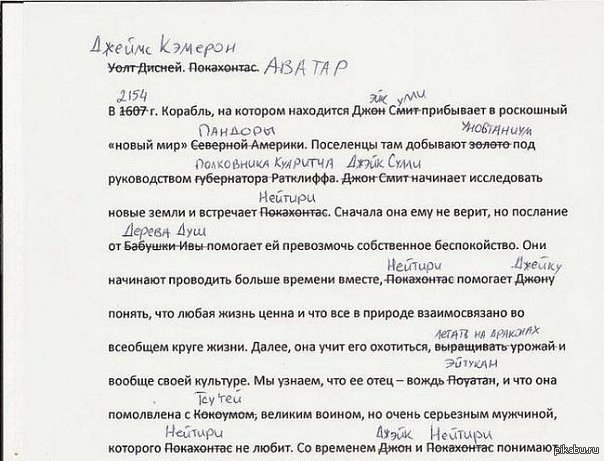 Джеймс Кэмерон
Уолт Дисней. Покахонтас. АВАТАР
2154 эйк улли
В 1607 г. Корабль, на котором находится Джон Смит прибывает в роскошный
ПАНДОРЫ УНОБТАНИУМ
«новый мир» Северной Америки. Поселенцы там добывают золото под
ПОЛКОВНИКА КУАРИТЧА ДЖЭЙК СУЛИ
руководством губернатора Ратклиффа. Джон Смит начинает исследовать
НЕЙТИРИ
новые земли и встречает Покахонтас. Сначала она ему не верит, но послание
Дерева Душ
от Бабушки Ивы помогает ей превозмочь собственное беспокойство. Они
Нейтири Джейку
начинают проводить больше времени вместе, Покахонтас помогает Джону
понять, что любая жизнь ценна и что все в природе взаимосвязано во
ЛЕТАТЬ НА ДРАКОНАХ
всеобщем круге жизни. Далее, она учит его охотиться, выращивать урожай и
ЭЙТУКАН
вообще своей культуре. Мы узнаем, что ее отец – вождь Поуатан, и что она
Тсу'тей
помолвлена с Кокоумом, великим воином, но очень серьезным мужчиной,
Нейтири Джэйк Нейтири
которого Покахонтас не любит. Со временем Джон и Покахонтас понимают,
pikabu.ru